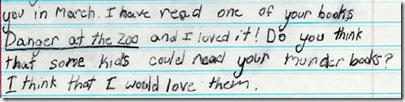 you in March. I have read one of your books
Danger at the Zoo and I loved it! Do you think
that some kids could read your murder books?
I think that I would love them.